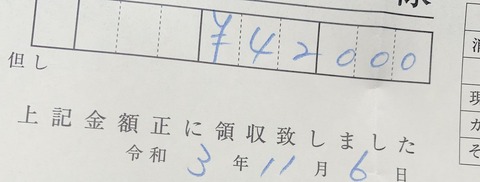 様
¥42000
但し
上記金額正に領収致しました
令和3年11月6日